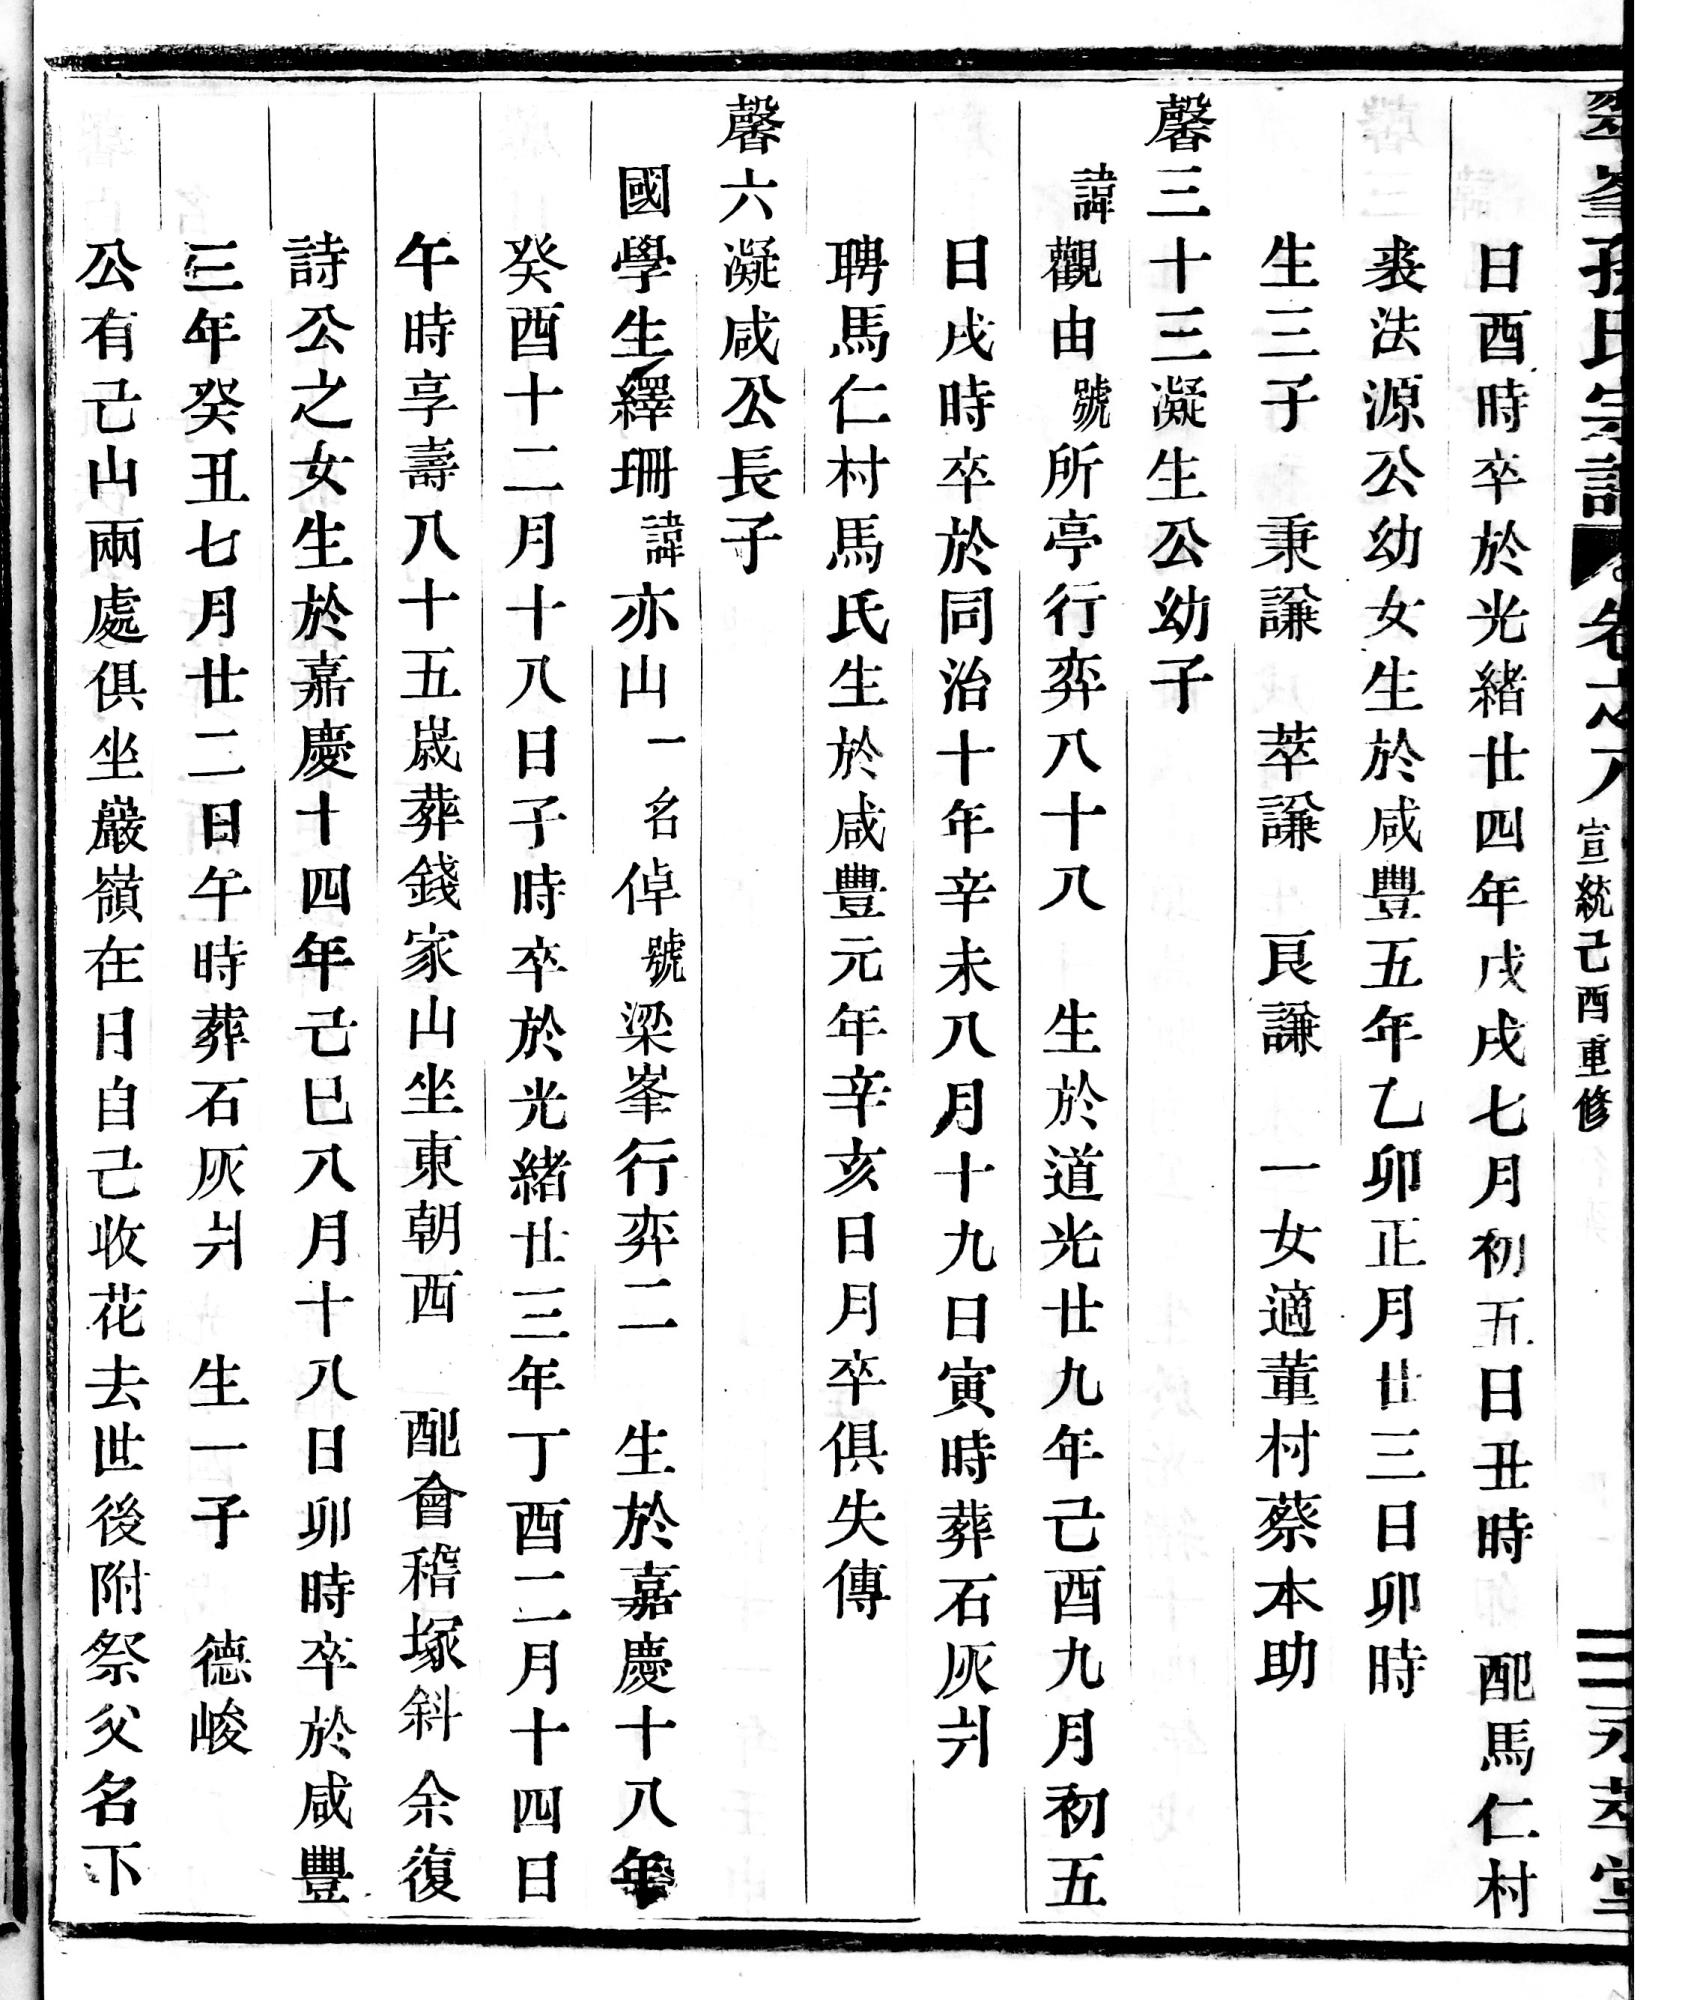 翠峯孫氏宗譜 卷之八 宣統己酉重修 二 永萃堂
日酉時卒於光緒廿四年戊戌七月初五日丑時 配馬仁村
裘法源公幼女生於咸豐五年乙卯正月廿三日卯時
生三子 秉謙 萃謙 艮謙 一女適董村蔡本助
馨三十三凝生公幼子
諱觀由號所亭行弈八十八 生於道光廿九年己酉九月初五
日戌時卒於同治十年辛未八月十九日寅時葬石灰爿
聘馬仁村馬氏生於咸豐元年辛亥日月卒俱失傳
馨六凝咸公長子
國學生繹珊諱亦山一名倬號梁峯行弈二 生於嘉慶十八年
癸酉十二月十八日子時卒於光緒廿三年丁酉二月十四日
午時享壽八十五歲葬錢家山坐東朝西 配會稽塚斜余復
詩公之女生於嘉慶十四年己巳八月十八日卯時卒於咸豐
三年癸丑七月廿二日午時葬石灰爿 生一子 德峻
公有己山兩處俱坐巖嶺在日自己收花去世後附祭父名下